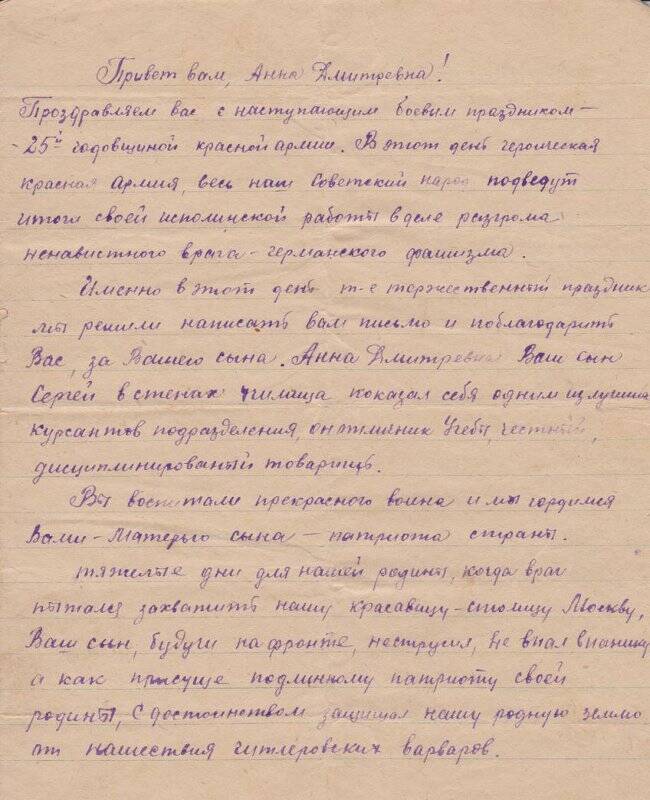 Привет вам, Анна Дмитревна!
Проздравляем вас с наступающим боевым праздником —
- 25й годовщиной красной армии. В этот день героическая
красная армия, весь наш Советский народ подведут
итоги своей исполинской работы в деле разгрома
ненавистного врага - германского фашизма.
Именно в этот день т-е торжественный праздник
мы решили написать вам письмо и поблагодарить
Вас, за Вашего сына. Анна Дмитревна Ваш сын
Сергей в стенах училища показал себя одним из лучших
курсантов подразделения, он отличник Учебы, честный,
дисциплинированый товарищь.
Вы воспитали прекрасного воина и мы гордимся
Вами - Матерью сына - патриота страны.
тяжелые дни для нашей родины, когда враг
пытался захватить нашу красавицу-столицу Москву,
Ваш сын, будучи на фронте, неструсил, не впал впанику
а как присуще подлинному патриоту своей
родины, с достоинством защищал нашу родную землю
от нашествия гитлеровских варваров.